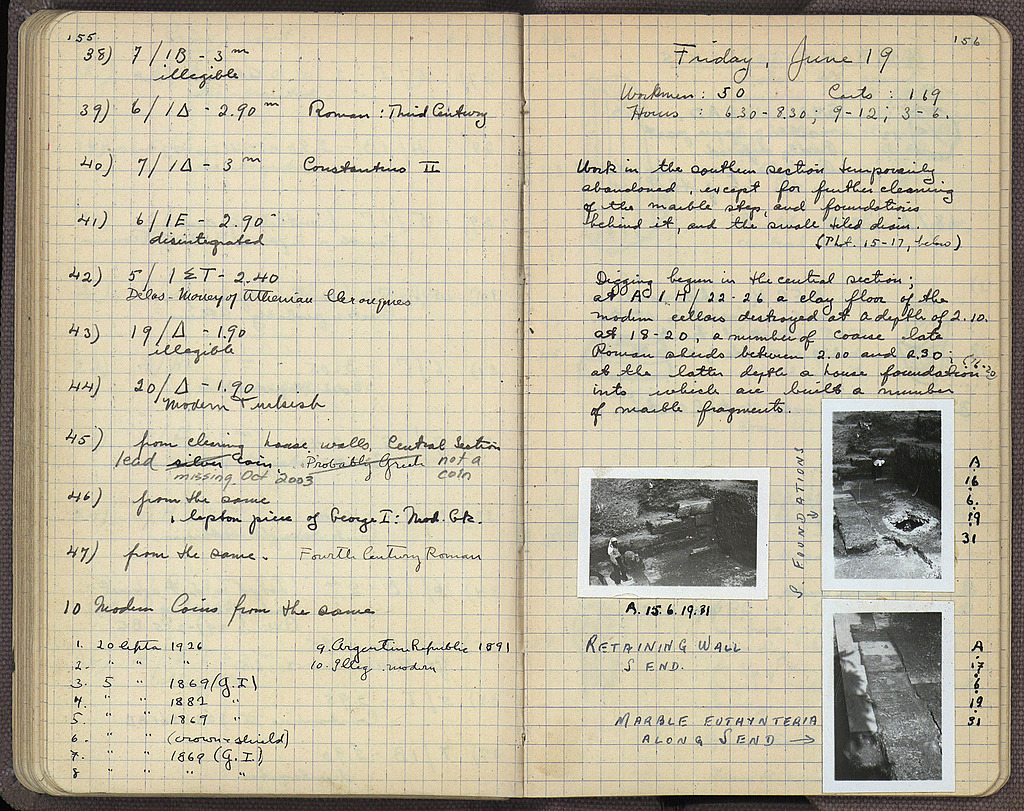 155
38) 7/1B - 3 m
illegible
39) 6/1Δ - 2.90 m Roman: Third Century
40) 7/1Δ - 3 m Constantius II
41) 6/1E - 2.90
disintegrated
42) 5/1ΣT - 2.40
Delos - Money of Athenian Clerouques
43) 19/Δ - 1.90
illegible
44) 20/Δ - 1.90
Modern Turkish
45) from clearing house walls, Central Section
lead silver coin. Probably Greek not a
missing Oct 2003 coin
46) from the same
1 lepton piece of George I: Mod. Gk.
47) from the same. Fourth Century Roman
10 Modern Coins from the same
1. 20 lepta 1926 9. Argentin Republic 1891
2. " " " 10. Illeg. modern
3. 5 " 1869 (G.I)
4. " " 1882 "
5. " " 1869 "
6. " " (crown + shield)
7. " " 1869 (G.I.)
8 " " " "
156
Friday, June 19
Workmen: 50 Carts: 169
Hours: 6.30-8.30; 9-12; 3-6.
Work in the southern section temporarily
abandoned, except for further cleaning
of the marble step, and foundations
behind it, and the small tiled drain.
(Phot. 15-17, below)
Digging begun in the central section;
at A 1 H/22-26 a clay floor of the
modern cellar destroyed at a depth of 2.10.
at 18-20, a number of coarse late
Roman sherds between 2.00 and 2.30;
at the latter depth a house foundation (16-20
into which are built a number
of marble fragments.
A. 15. 6. 19. 31
RETAINING WALL
S END.
S. FOUNDATIONS
A
16
6.
19
31
MARBLE EUTHYNTERIA
ALONG S END →
A
17
6
19
31